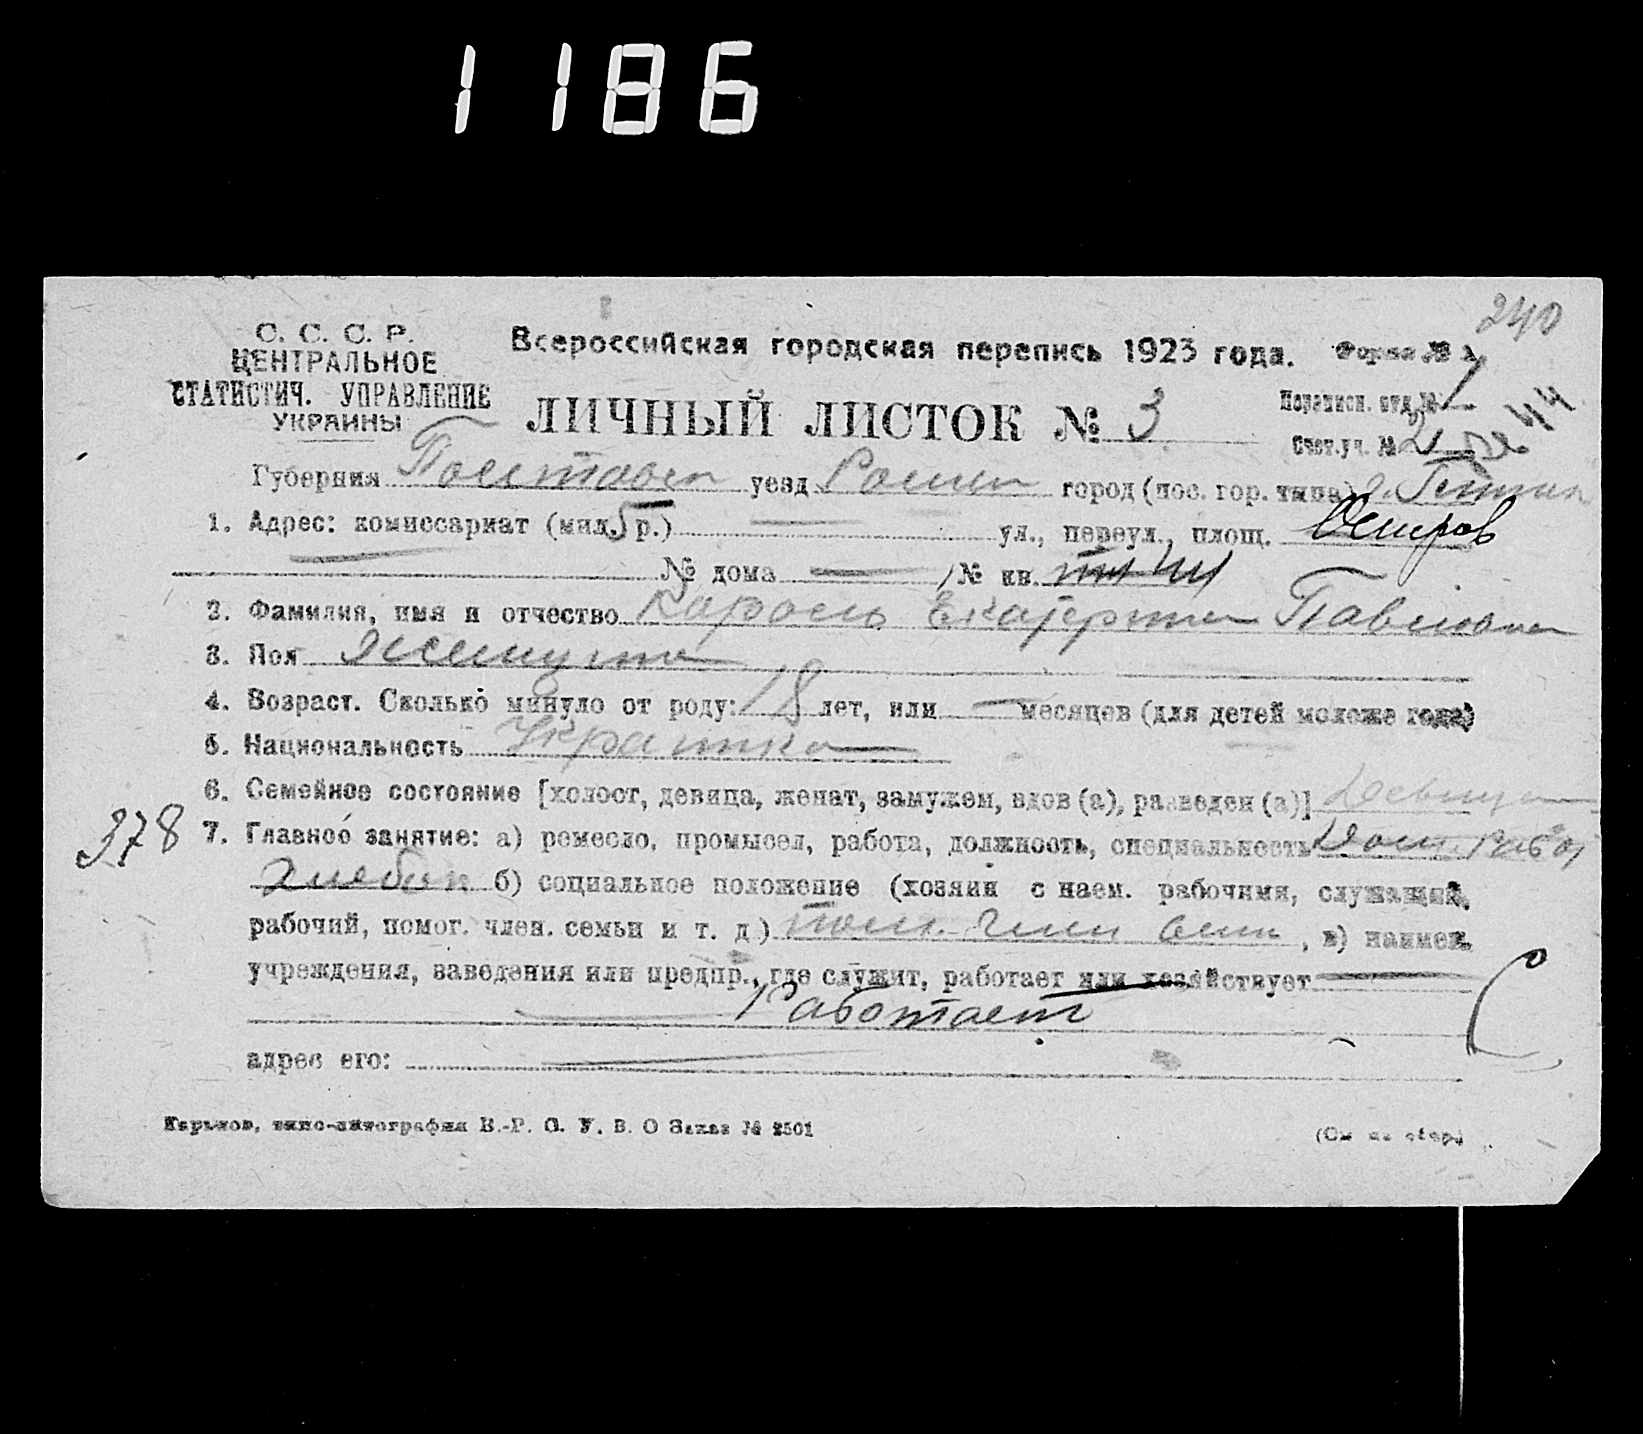 1186
240
С. С. С. Р.
ЦЕНТРАЛЬНОЕ
СТАТИСТИЧ. УПРАВЛЕНИЕ
УКРАИНЫ
Всероссийская городская перепись 1923 года.
Форма №
ЛИЧНЫЙ ЛИСТОК № 3
Переписн. отд. № 1
Счет. уч. № 2 44
Губерния Полтавск уезд Ромен город (пос. гор. типа)
1. Адрес: комиссариат (мил. 5 р.) ул., переул., площ. Остров
№ дома — / № кв.
2. Фамилия, имя и отчество Король Екатерина Павловна
3. Пол Женщина
4. Возраст. Сколько минуло от роду: 18 лет, или — месяцев (для детей моложе года)
5. Национальность Украинка
6. Семейное состояние [холост, девица, женат, замужем, вдов (а), разведен (а)] Девица
378
7. Главное занятие: а) ремесло, промысел, работа, должность, специальность Дом. Работ
б) социальное положение (хозяин с наем. рабочими, служащий,
рабочий, помог. член. семьи и т. д.) пом. член сем , в) наимен.
учреждения, заведения или предпр., где служит, работает или хозяйствует
Работает
адрес его:
Харьков, типо-литография В.-Р. С. У. В. О Заказ № 2501
(См на обор.)